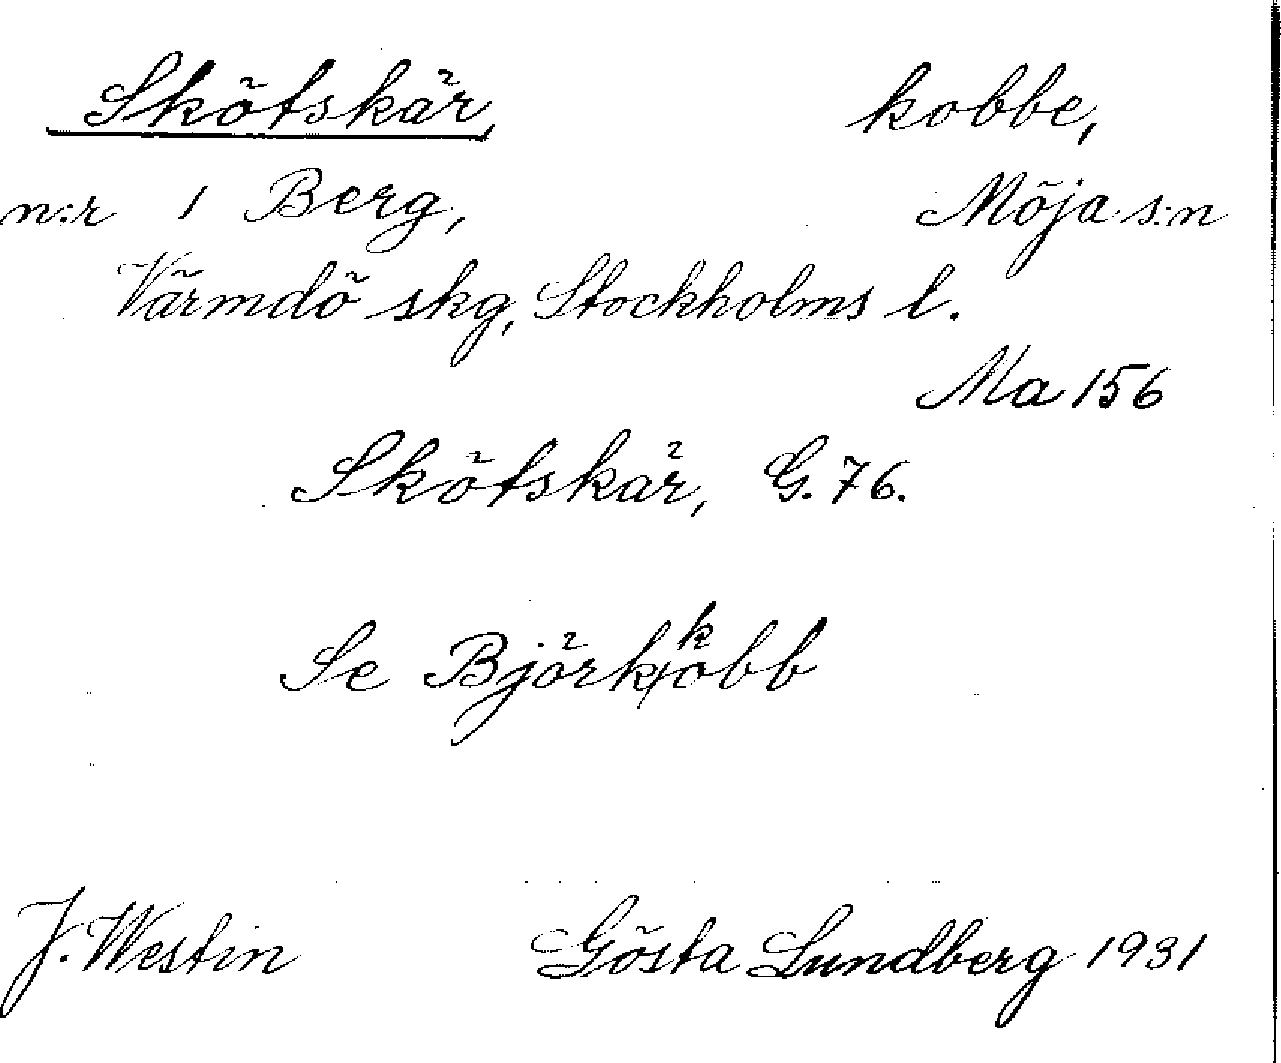 Skötskär, kobbe,
n:r 1 Berg, Möja s:n
Värmdö skg, Stockholms l.
Ma 156
Skötskär, G. 76.
Se Björkkobb
J. Westin Gösta Lundberg 1931